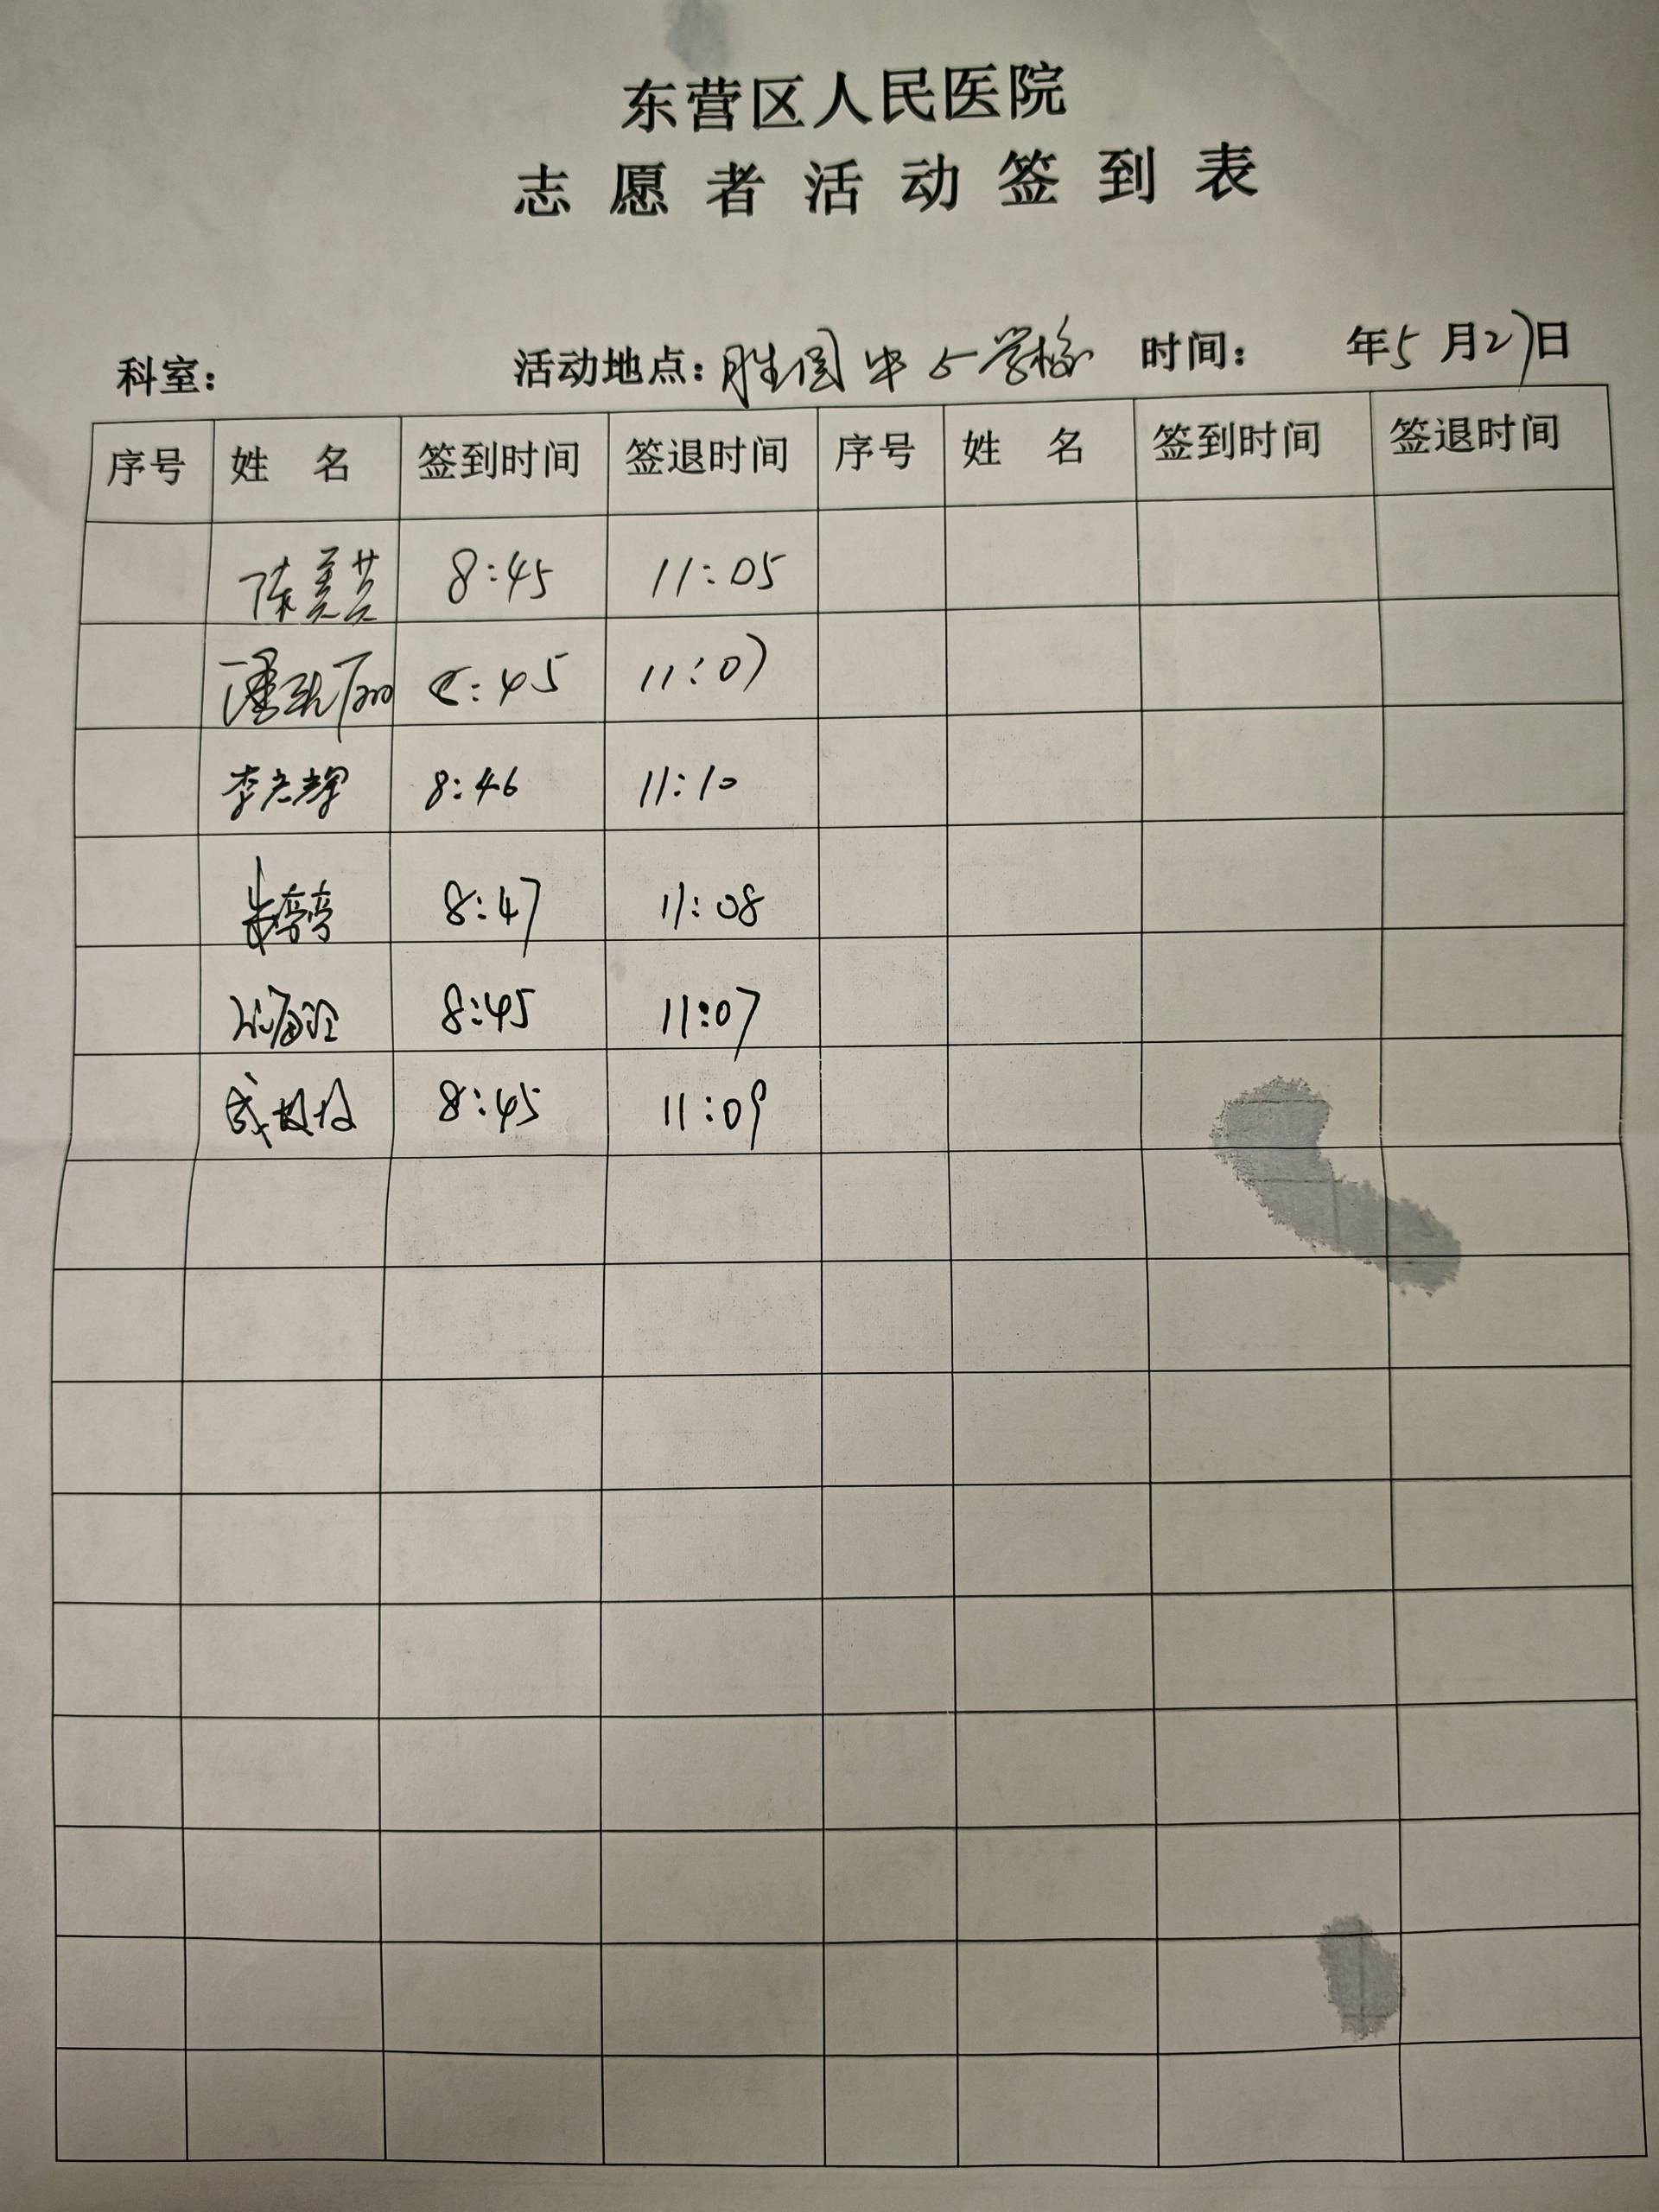 东营区人民医院
志愿者活动签到表
科室： 活动地点：胜园中心学校 时间： 年5月27日
序号 姓 名 签到时间 签退时间 序号 姓 名 签到时间 签退时间
陈美芸 8:45 11:05
潘 8:45 11:07
李光辉 8:46 11:10
朱 8:47 11:08
8:45 11:07
8:45 11:09